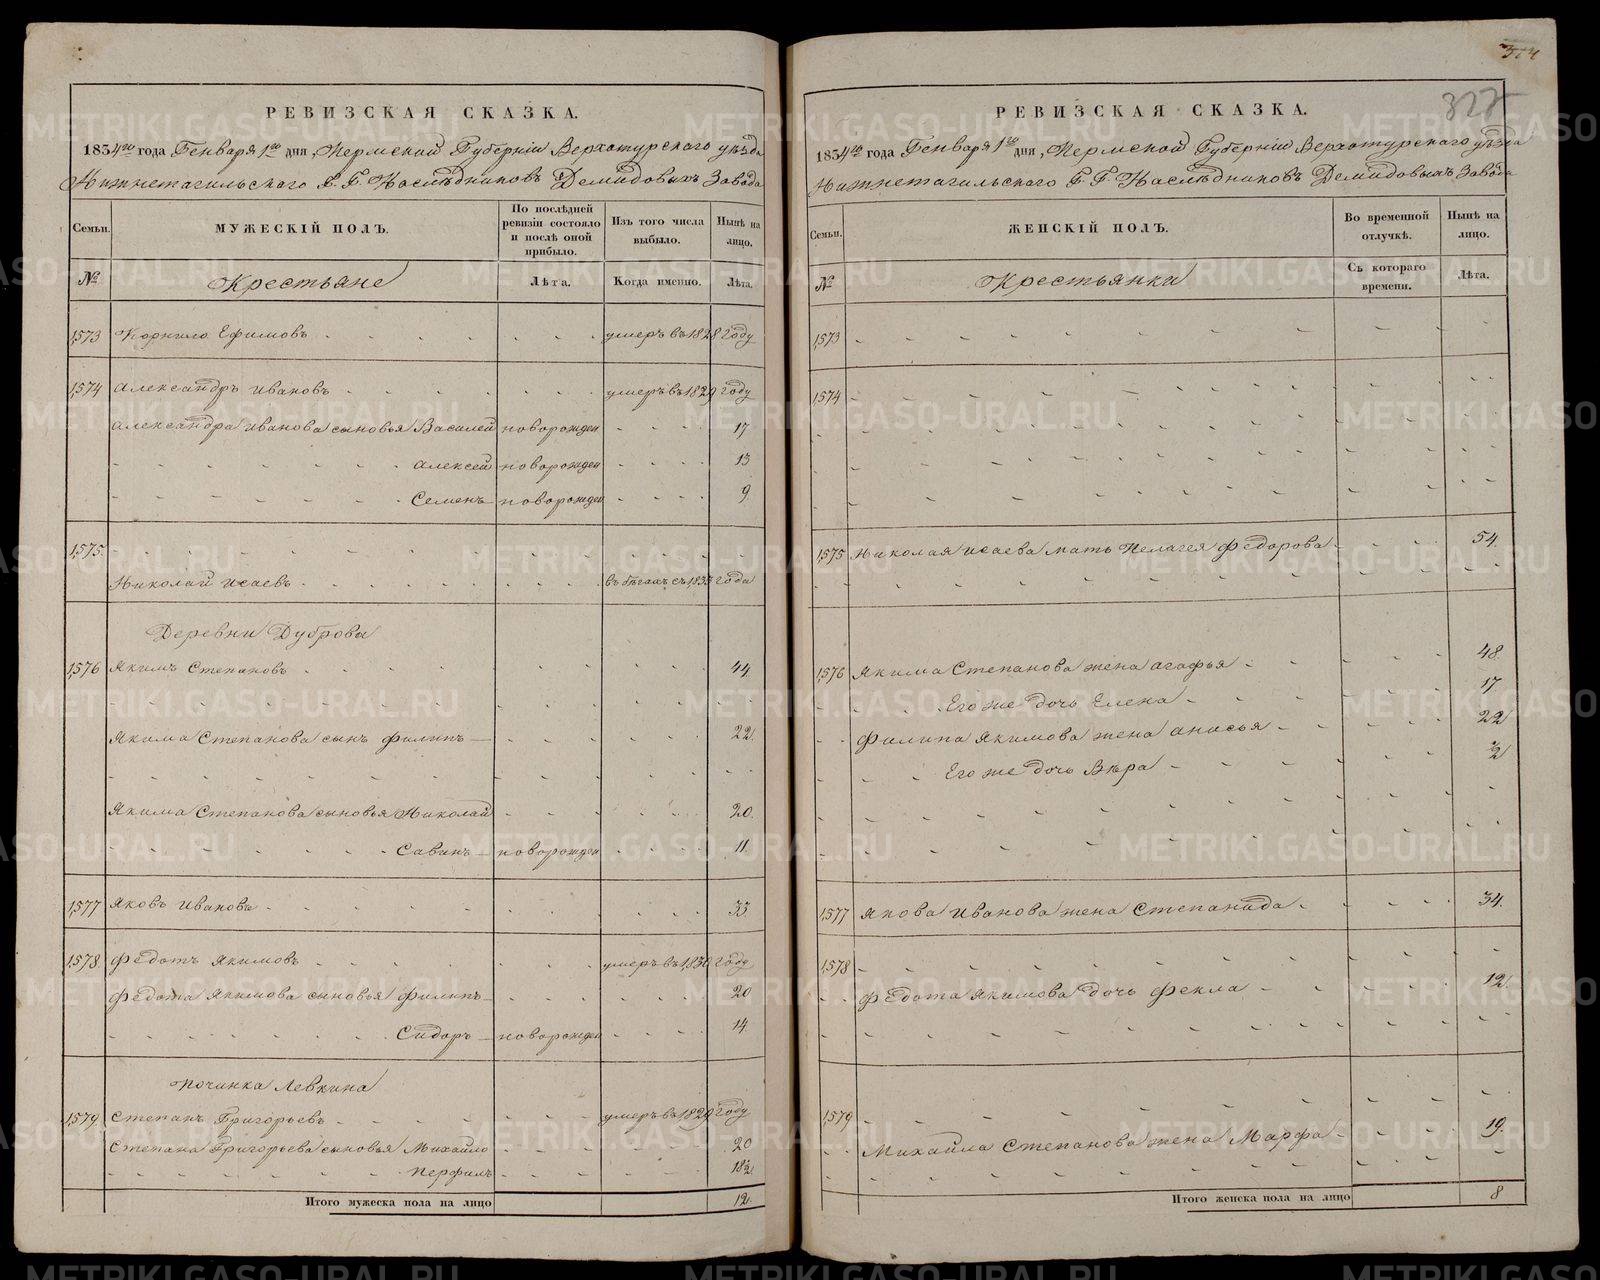 РЕВИЗСКАЯ СКАЗКА.
1834го года Генваря 1го дня, Пермской Губерніи Верхотурскаго уѣзда
Нижнетагильскаго Г. Г. Наслѣдниковъ Демидовыхъ Завода
Семьи.
МУЖЕСКІЙ ПОЛЪ.
По послѣдней ревизіи состояло и послѣ оной прибыло.
Изъ того числа выбыло.
Нынѣ на лицо.
№
Крестьяне
Лѣта.
Когда именно.
Лѣта.
1573 Корнило Ефимовъ умеръ въ 1828 году
1574 Александръ Ивановъ умеръ въ 1829 году
Александра Иванова сыновья Василей новорожден 17
Алексей новорожден 13
Семенъ новорожден 9
1575.
Николай Исаевъ въ бѣгахъ съ 1833 года
Деревни Дуброва
1576 Якимъ Степановъ 44
Якима Степанова сынъ Филипъ 22.
Якима Степанова сыновья Николай 20.
Савинъ новорожден 11
1577 Яковъ Ивановъ 33.
1578. Федотъ Якимовъ умеръ въ 1830 году
Федота Якимова сыновья Филипъ 20
Сидоръ новорожден 14.
Починка Левкина
1579 Степанъ Григорьевъ умеръ въ 1829 году
Степана Григорьева сыновья Михайло 20
Перфилъ 18½
Итого мужеска пола на лицо 12.
314
327
РЕВИЗСКАЯ СКАЗКА.
1834го года Генваря 1го дня, Пермской Губерніи Верхотурскаго уѣзда
Нижнетагильскаго Г. Г. Наслѣдниковъ Демидовыхъ Завода
Семьи.
ЖЕНСКІЙ ПОЛЪ.
Во временной отлучкѣ.
Нынѣ на лицо.
№
Крестьянки
Съ котораго времени.
Лѣта.
1573
1574
1575 Николая Исаева мать Пелагея Федорова 54.
1576 Якима Степанова жена Агафья 48.
Его же дочь Елена 17
Филипа Якимова жена Анисья 22
Его же дочь Вѣра ½
1577 Якова Иванова жена Степанида 34.
1578
Федота Якимова дочь Фекла 12.
1579
Михайла Степанова жена Марфа 19.
Итого женска пола на лицо 8
METRIKI.GASO-URAL.RU